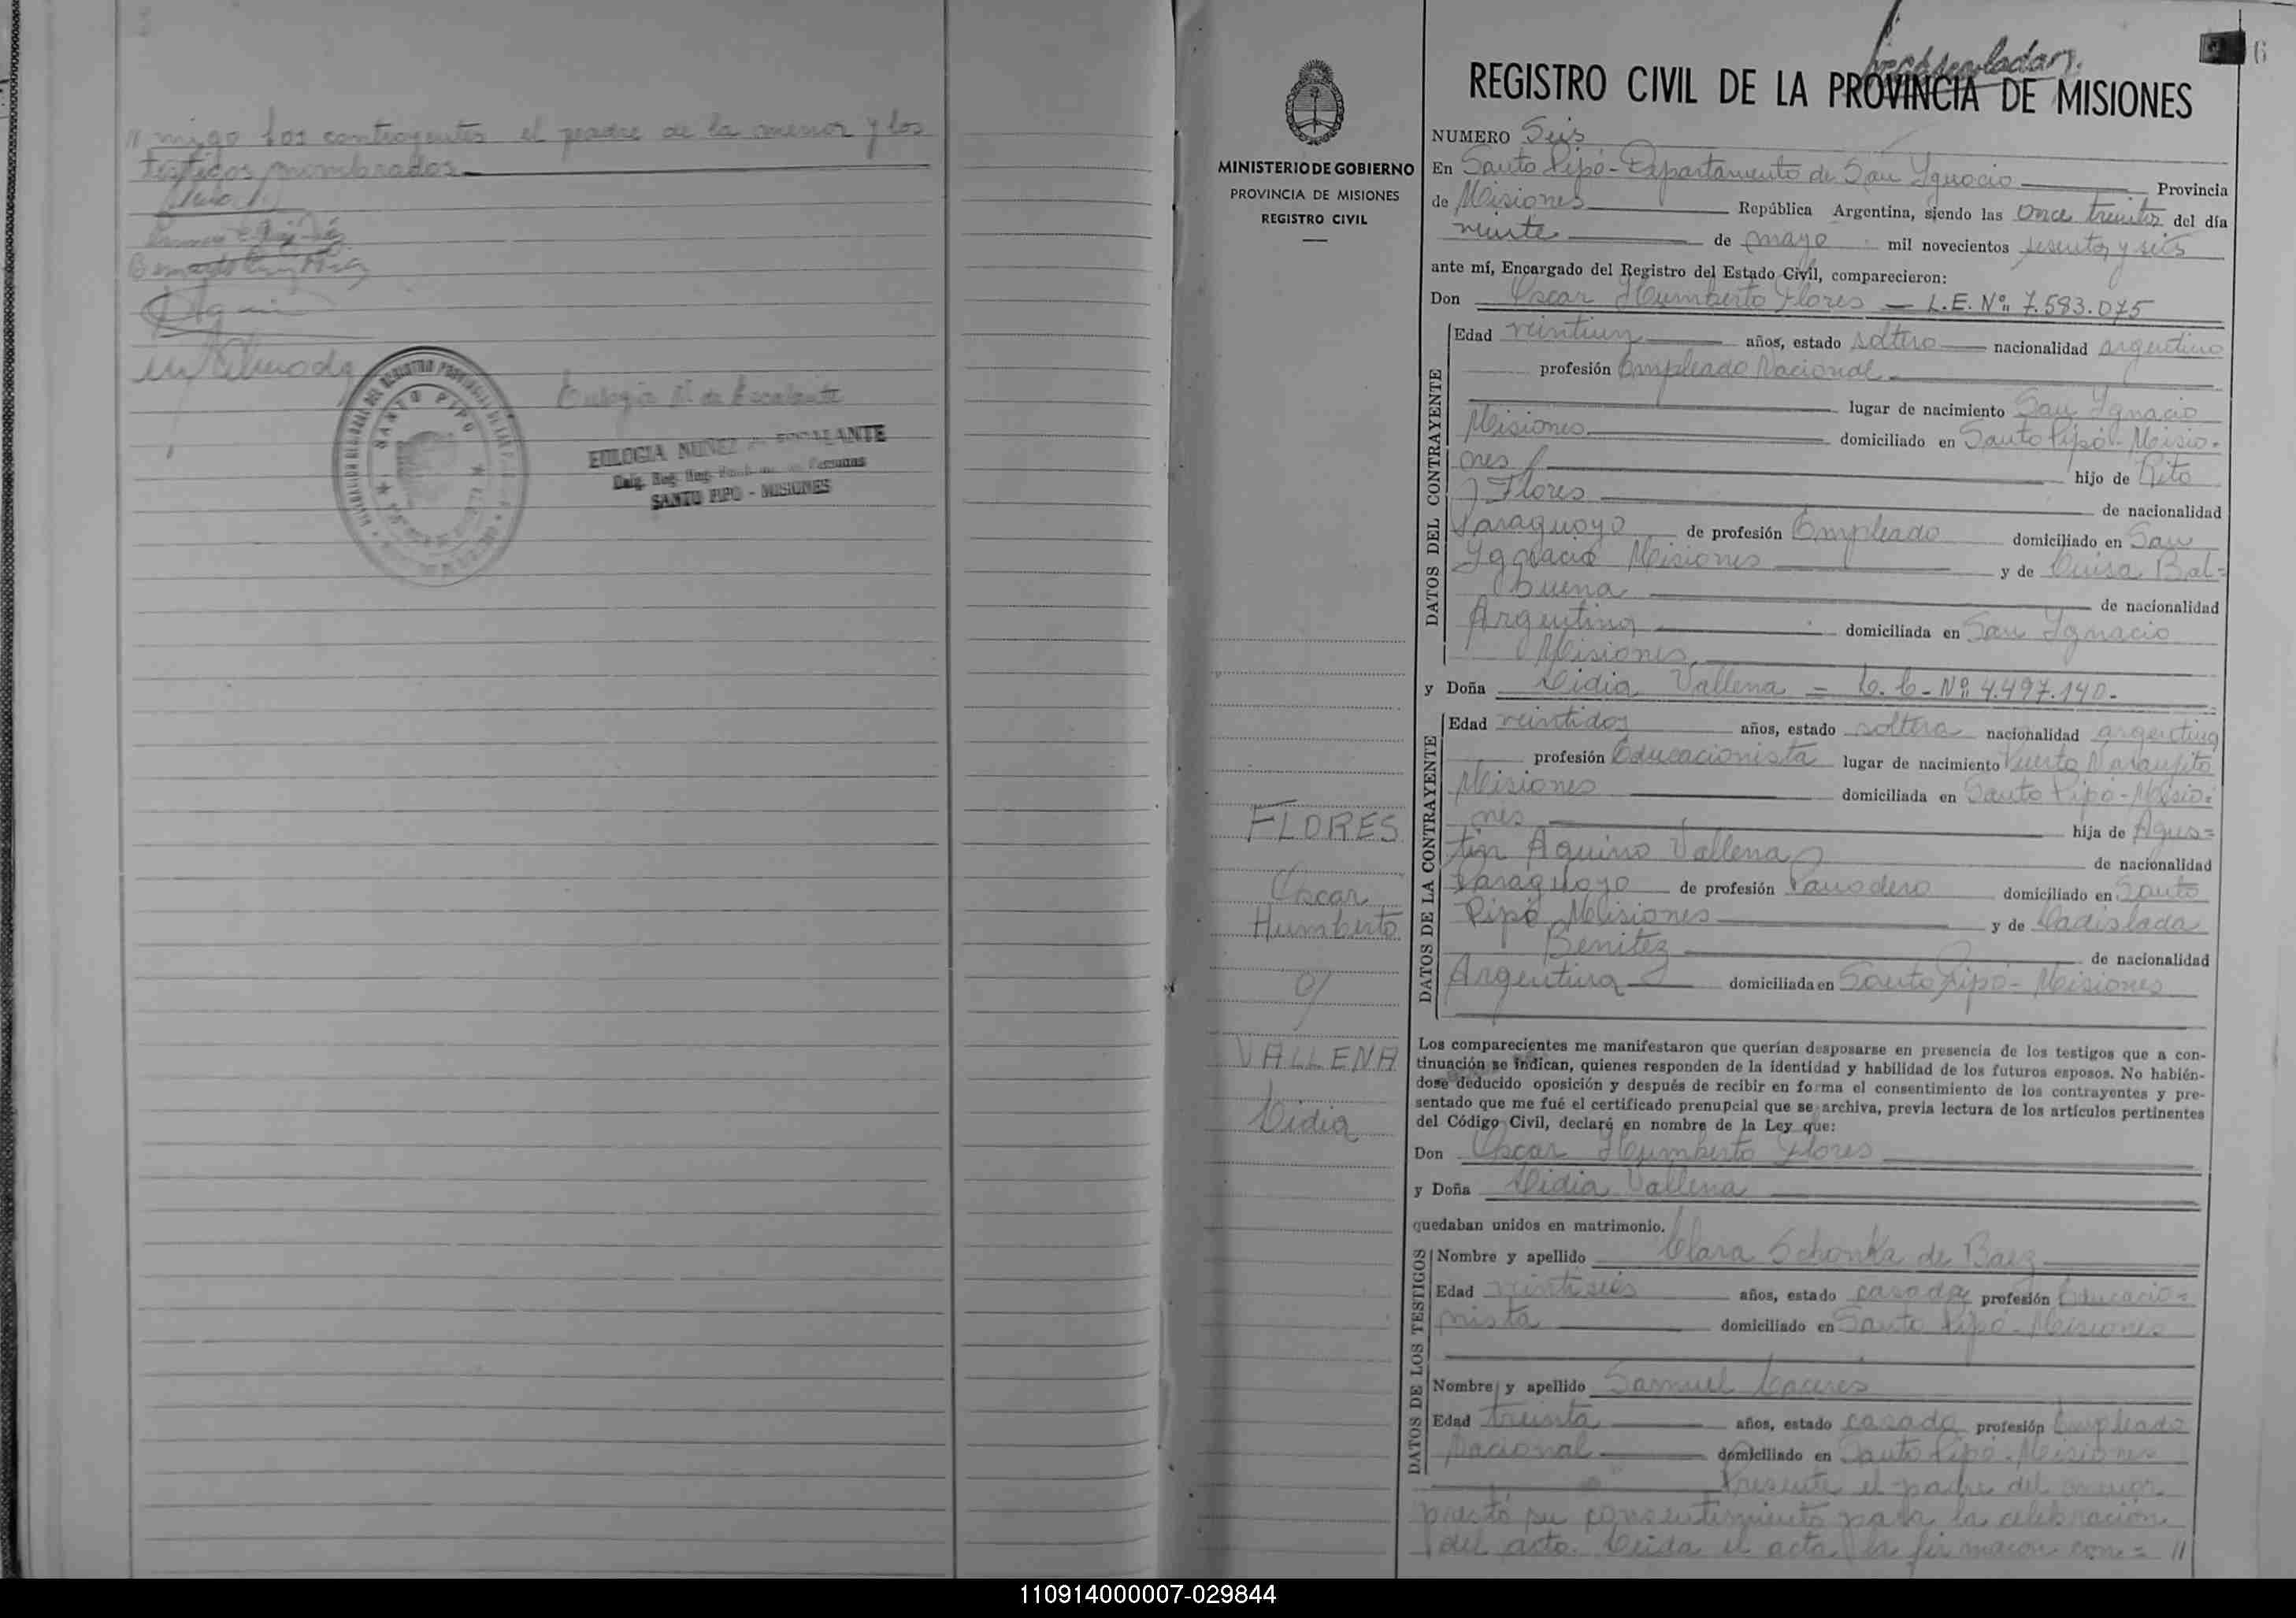 // migo los contrayentes el padre de la menor y los
testigos nombrados
Eulogia N de Escalante
EULOGIA NUÑEZ de ESCALANTE
SANTO PIPO - MISIONES
SANTO PIPO
6
REGISTRO CIVIL DE LA PROVINCIA DE MISIONES
MINISTERIO DE GOBIERNO
PROVINCIA DE MISIONES
REGISTRO CIVIL
NUMERO Seis
En Santo Pipó - Departamento de San Ygnacio Provincia
de Misiones República Argentina, siendo las once treinta del día
veinte de mayo mil novecientos sesenta y seis
ante mí, Encargado del Registro del Estado Civil, comparecieron:
Don Oscar Humberto Flores — L.E. Nº 7.583.075
DATOS DEL CONTRAYENTE
Edad veintiun años, estado soltero nacionalidad argentino
profesión Empleado Nacional
lugar de nacimiento San Ygnacio
Misiones domiciliado en Santo Pipó - Misio=
nes hijo de Rito
Flores de nacionalidad
Paraguayo de profesión Empleado domiciliado en San
Ygnacio Misiones y de Luisa Bal=
buena de nacionalidad
Argentina domiciliada en San Ygnacio
Misiones
y Doña Lidia Vallena — L. C. Nº 4.497.140.-
DATOS DE LA CONTRAYENTE
Edad veintidos años, estado soltera nacionalidad argentina
profesión Educacionista lugar de nacimiento Puerto Naranjito
Misiones domiciliada en Santo Pipó - Misio=
nes hija de Agus=
tin Aquino Vallena de nacionalidad
Paraguayo de profesión Panadero domiciliado en Santo
Pipó Misiones y de Ladislada
Benitez de nacionalidad
Argentina domiciliada en Santo Pipó - Misiones
FLORES
Oscar
Humberto
y
VALLENA
Lidia
Los comparecientes me manifestaron que querían desposarse en presencia de los testigos que a con-
tinuación se indican, quienes responden de la identidad y habilidad de los futuros esposos. No habién-
dose deducido oposición y después de recibir en forma el consentimiento de los contrayentes y pre-
sentado que me fué el certificado prenupcial que se archiva, previa lectura de los artículos pertinentes
del Código Civil, declaré en nombre de la Ley que:
Don Oscar Humberto Flores
y Doña Lidia Vallena
quedaban unidos en matrimonio.
DATOS DE LOS TESTIGOS
Nombre y apellido Clara Schonka de Baez
Edad veintiseis años, estado casada profesión Educacio=
nista domiciliado en Santo Pipó - Misiones
Nombre y apellido Samuel Caceres
Edad treinta años, estado casado profesión Empleado
Nacional domiciliado en Santo Pipó - Misiones
Presente el padre del menor
prestó su consentimiento para la celebración
del acto. Leida el acta la firmaron con= //
110914000007-029844